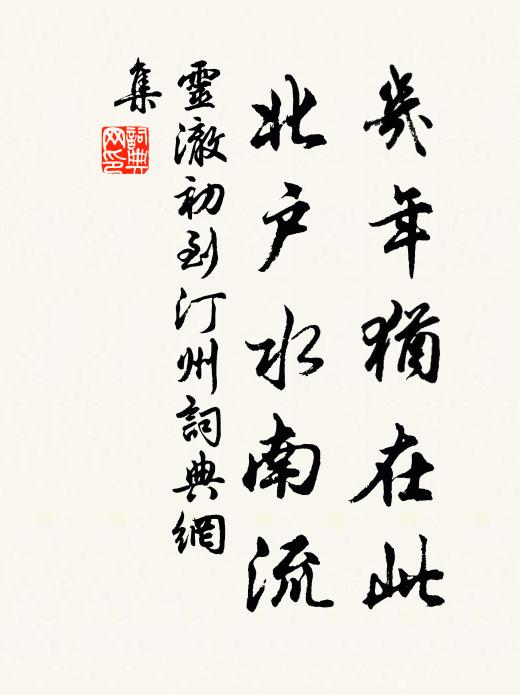 幾年猶在此
北户水南流
靈澈初到汀州詞典網
集
詞典网印